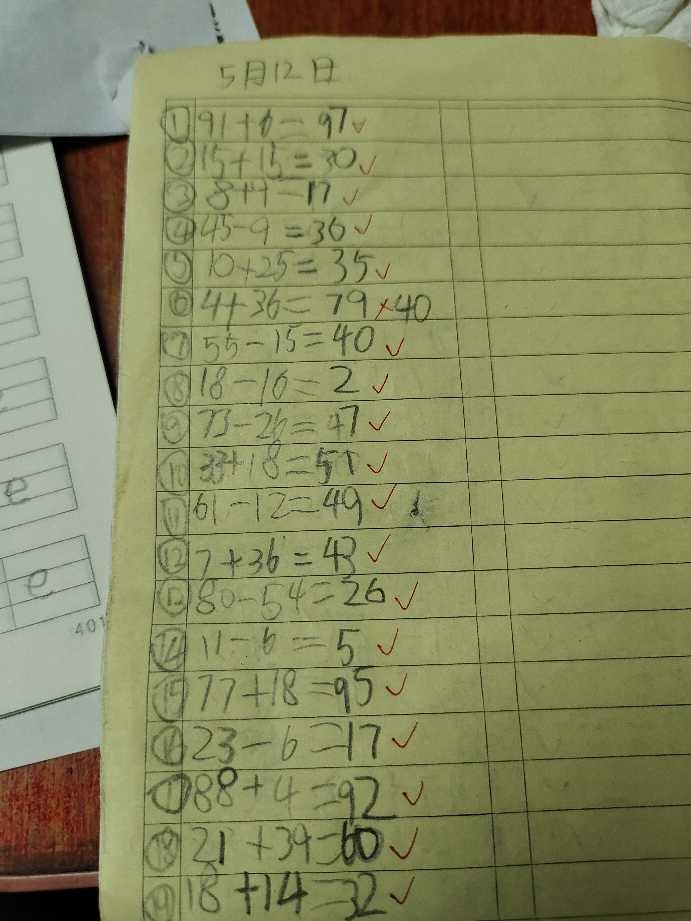 5月12日
① 91+6=97 ✓
② 15+15=30 ✓
③ 8+9=17 ✓
④ 45-9=36 ✓
⑤ 10+25=35 ✓
⑥ 4+36=79 × 40
⑦ 55-15=40 ✓
⑧ 18-16=2 ✓
⑨ 73-26=47 ✓
⑩ 33+18=51 ✓
⑪ 61-12=49 ✓
⑫ 7+36=43 ✓
⑬ 80-54=26 ✓
⑭ 11-6=5 ✓
⑮ 77+18=95 ✓
⑯ 23-6=17 ✓
⑰ 88+4=92 ✓
⑱ 21+39=60 ✓
⑲ 18+14=32 ✓
e
e
401